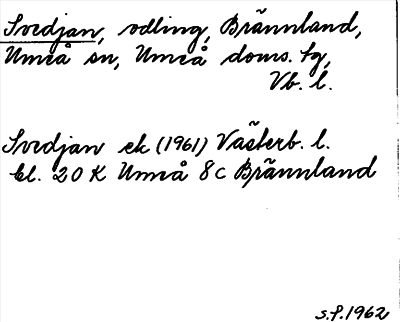 Svedjan, odling, Brännland,
Umeå sn, Umeå doms. tg,
Vb. l.
Svedjan ek (1961) Västerb. l.
bl. 20 K Umeå 8c Brännland
S.f. 1962